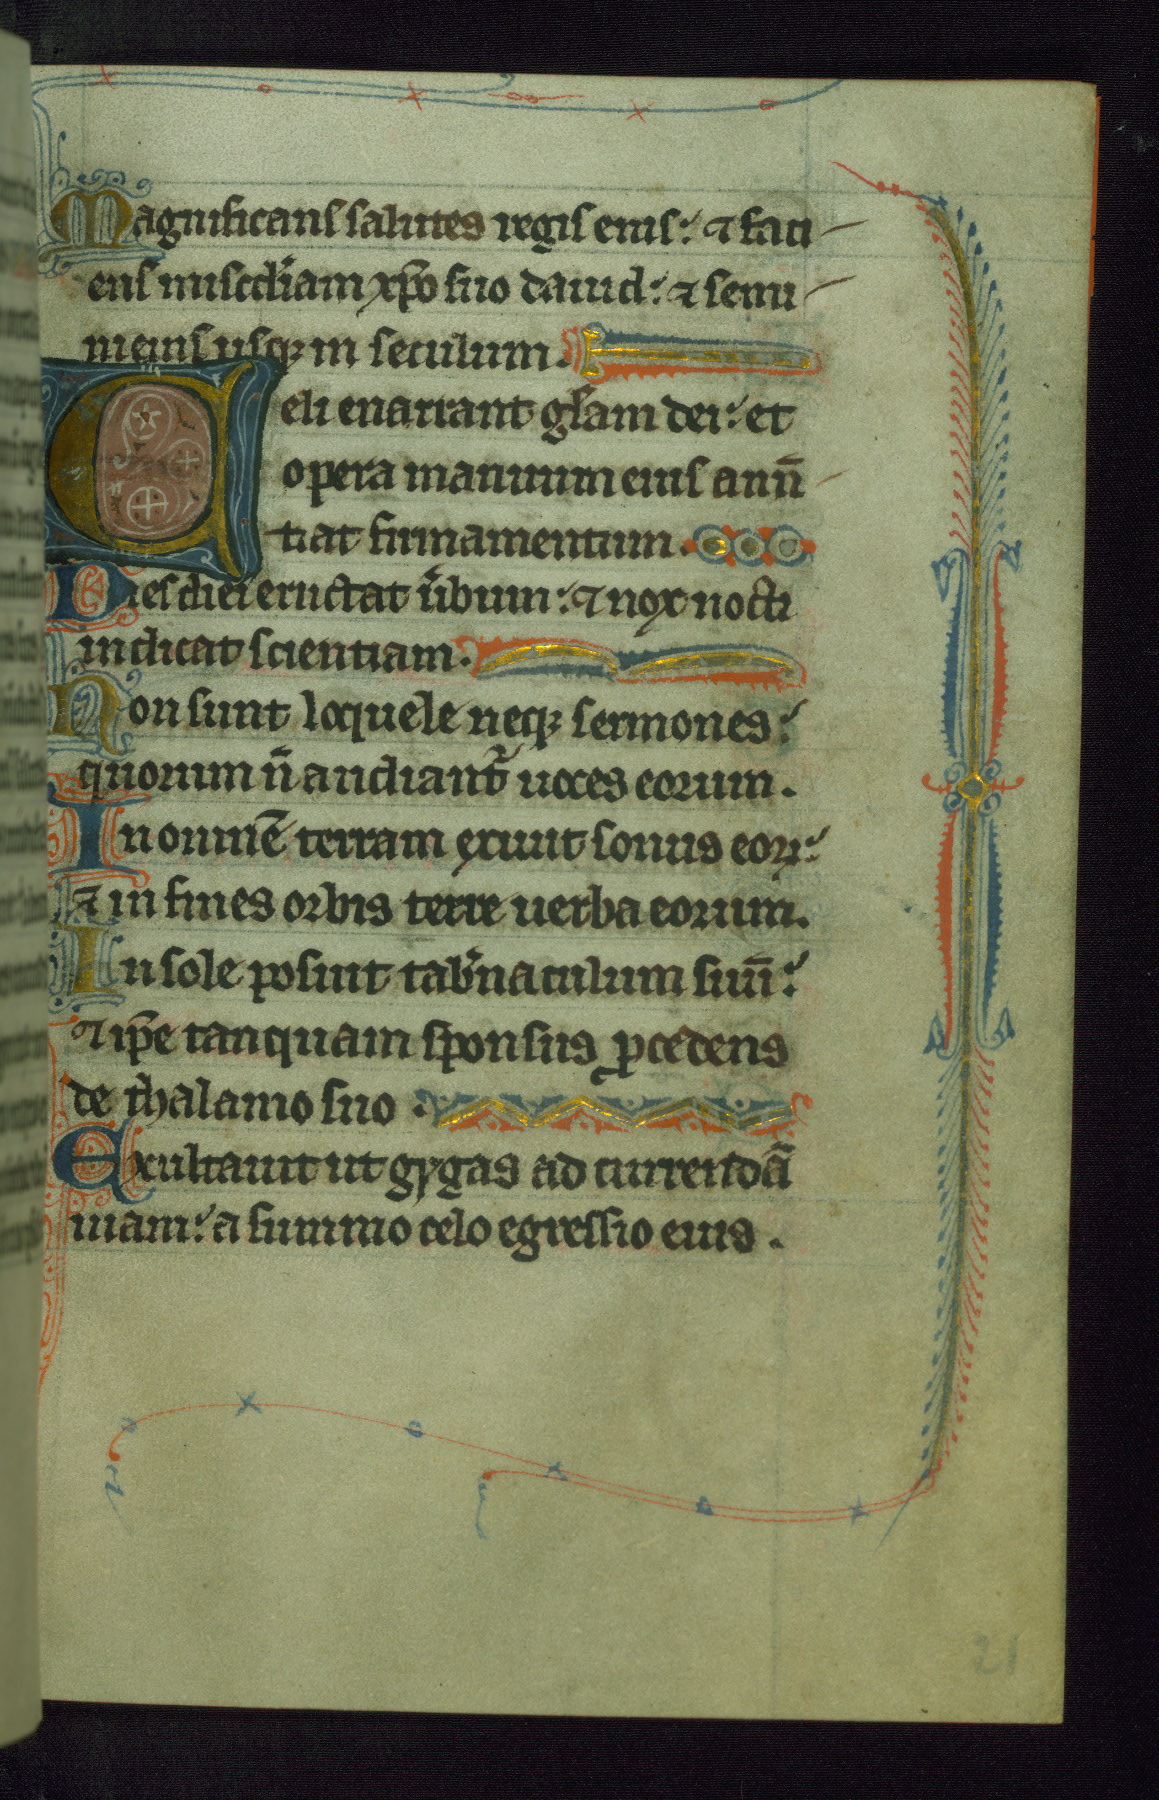 Magnificans salutes regis eius: ⁊ faci
ens misc̄diam xp̄o suo dauid: ⁊ semi
ni eius usqꝫ in seculum.
Celi enarrant gl̄am dei: et
opera manuum eius anū
tiat firmamentum.
Dies diei eructat ūbum: ⁊ nox nocti
indicat scientiam.
Non sunt loquele neqꝫ sermones:
quorum n̄ audiant᷑ uoces eorum.
In omnē terram exiuit sonus eoꝝ:
⁊ in fines orbis terre uerba eorum.
In sole posuit tab̄naculum suū:
⁊ ip̄e tanquam sponsus ꝓcedens
de thalamo suo.
Exultauit ut gygas ad currendā
uiam: a summo celo egressio eius.
21